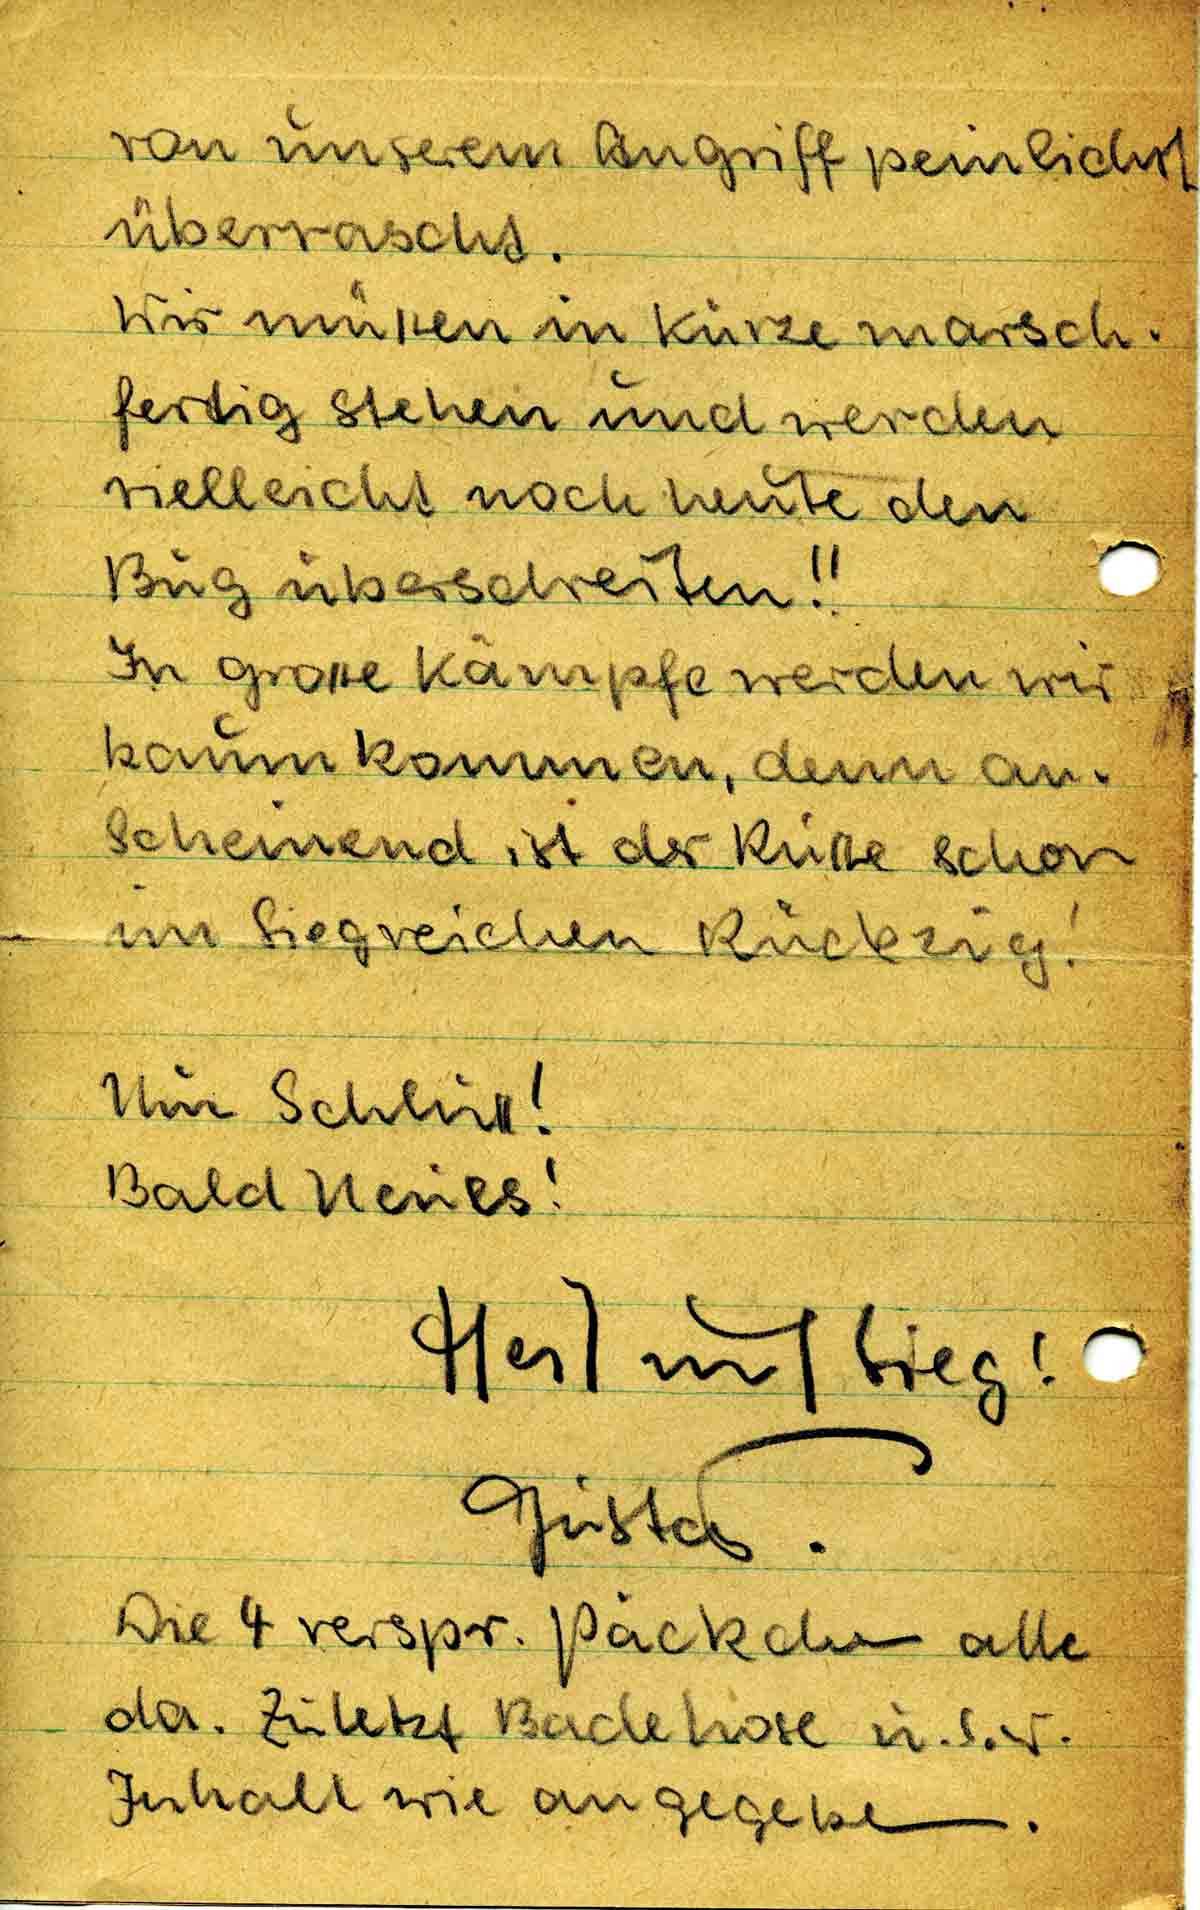 von unserem Angriff peinlichst
überrascht.
Wir müssen in Kürze marsch-
fertig stehen und werden
vielleicht noch heute den
Bug überschreiten!!
In grosse Kämpfe werden wir
kaum kommen, denn an-
scheinend ist der Russe schon
im siegreichen Rückzug!
Nun Schluss!
Bald Neues!
Heil und Sieg!
Gustav.
Die 4 verspr. Päckchen alle
da. Zuletzt Badehose u.s.w.
Inhalt wie angegeben.